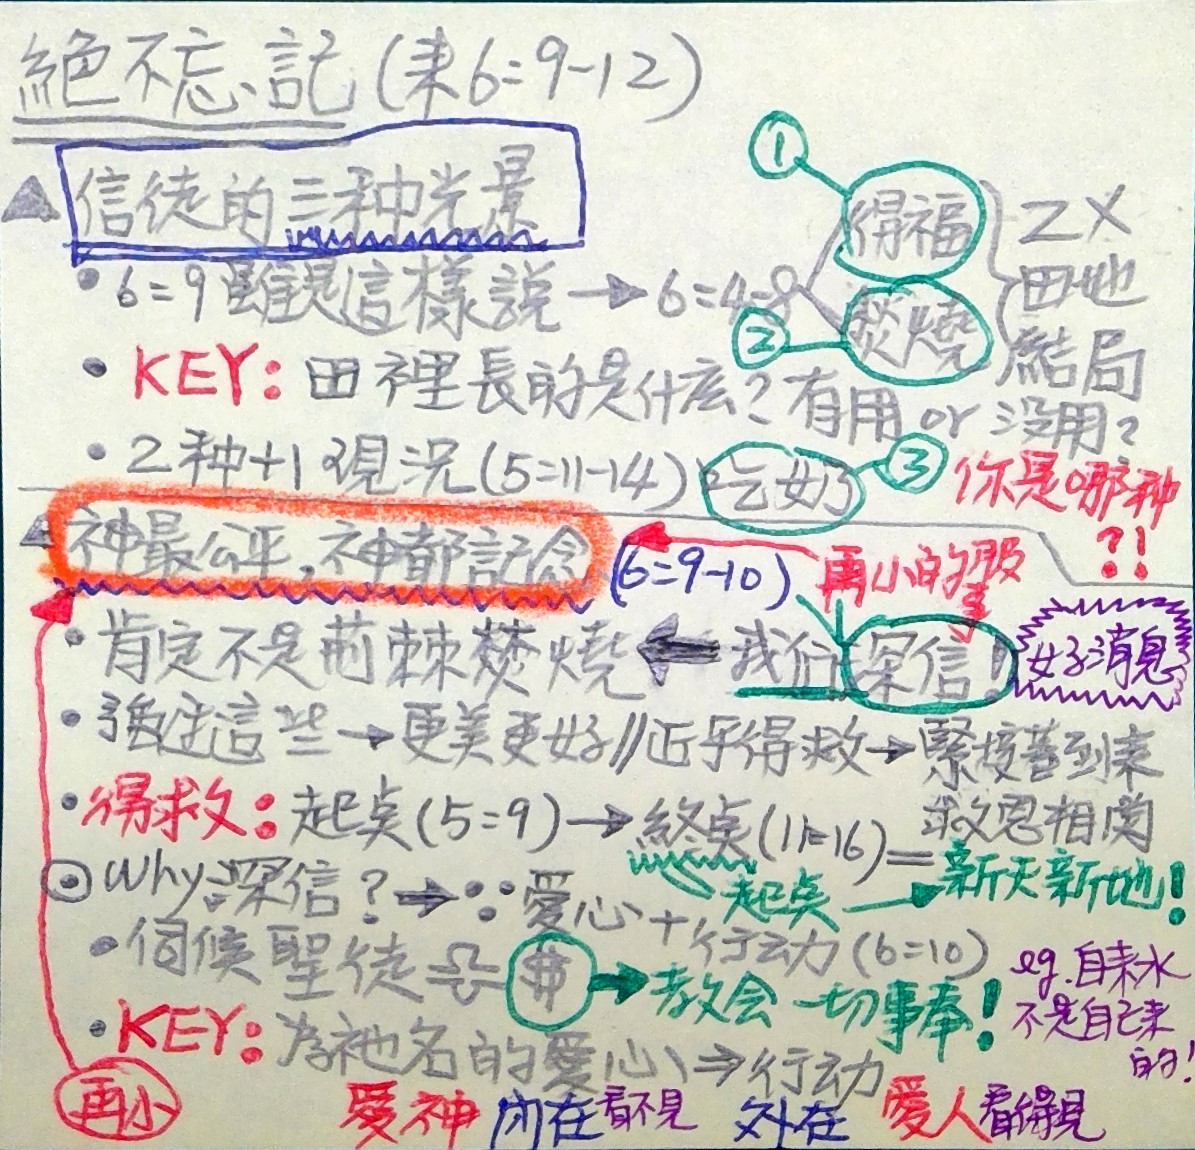 絕不忘記(來6=9-12)
信徒的三种光景
① 得福
② 焚燒
2X
田地
結局
6=9雖是這樣說→6=4-8
KEY:田裡長的是什麼?有用or沒用?
2种+1現況(5=11-14)吃奶③
你是哪种?!
神最公平,神都記念(6=9-10)
再小的服
肯定不是荊棘焚燒←我们深信!
好消息
強迫這些→更美更好//近乎得救→緊接著到來
救恩相関
得救:起奌(5=9)→終奌(11=16)=
起奌→新天新地!
Why深信?→∵愛心+行动(6=10)
伺候聖徒 → 教会一切事奉!
eg.自來水
不是自己来
的!
KEY:為祂名的愛心→行动
再小
愛神 內在看不見 外在 愛人看得見